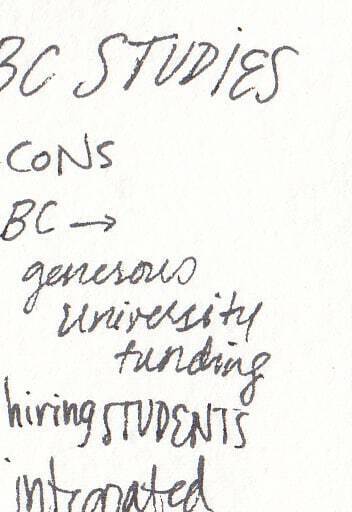 BC STUDIES
CONS
BC →
generous
university
funding
hiring STUDENTS
integrated